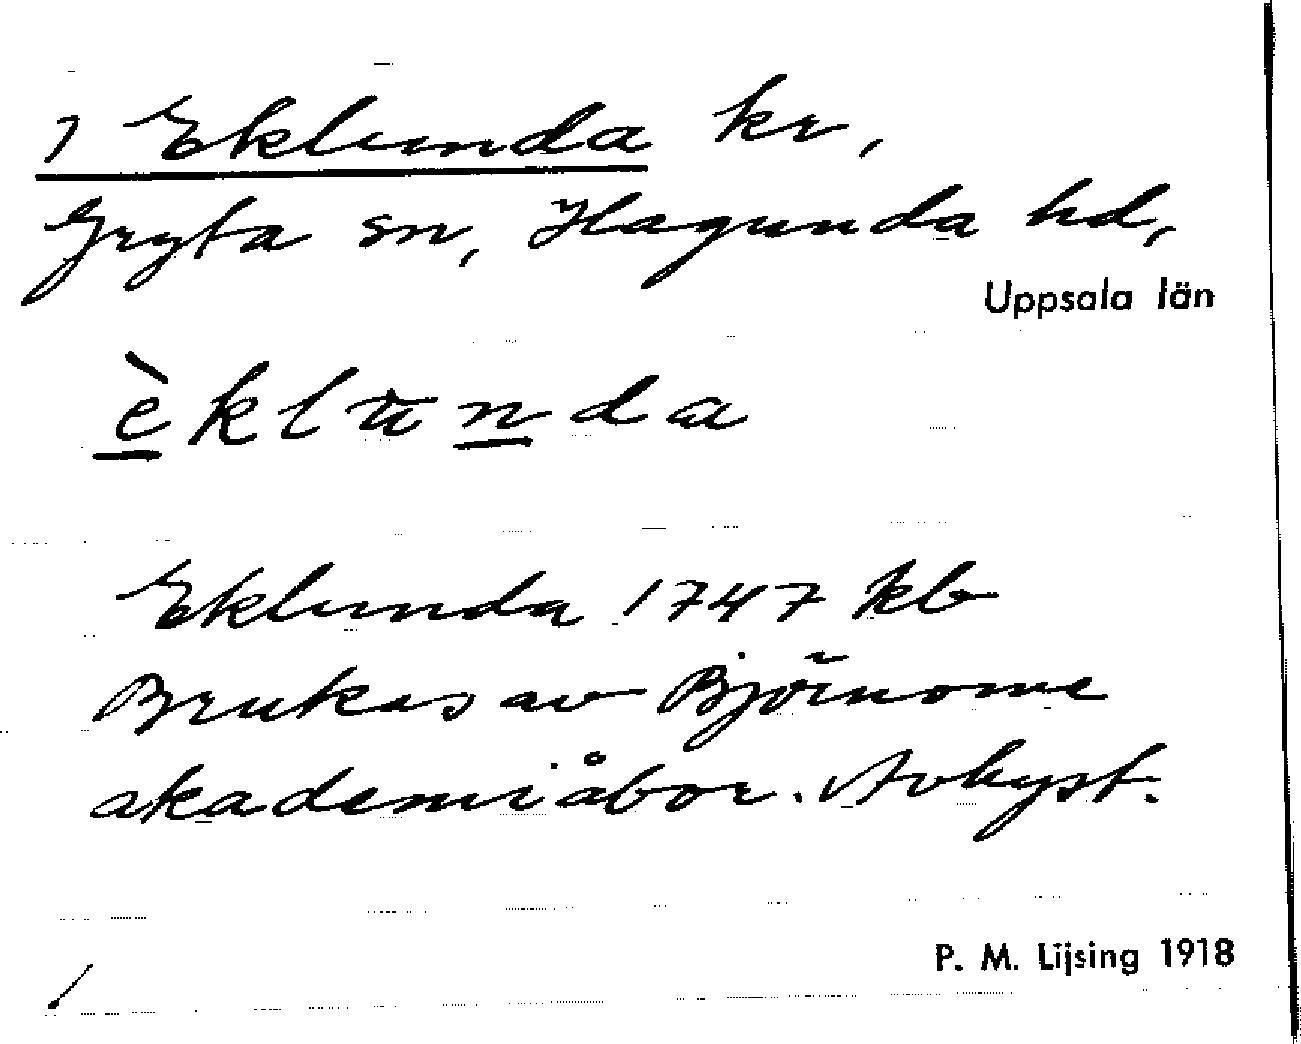 7 Eklunda kr,
Gryta sn, Hagunda hd,
Uppsala län
èklūnda
Eklunda 1747 kb
Brukas av Björnome
akademiåbor. Avhyst.
P. M. Lijsing 1918